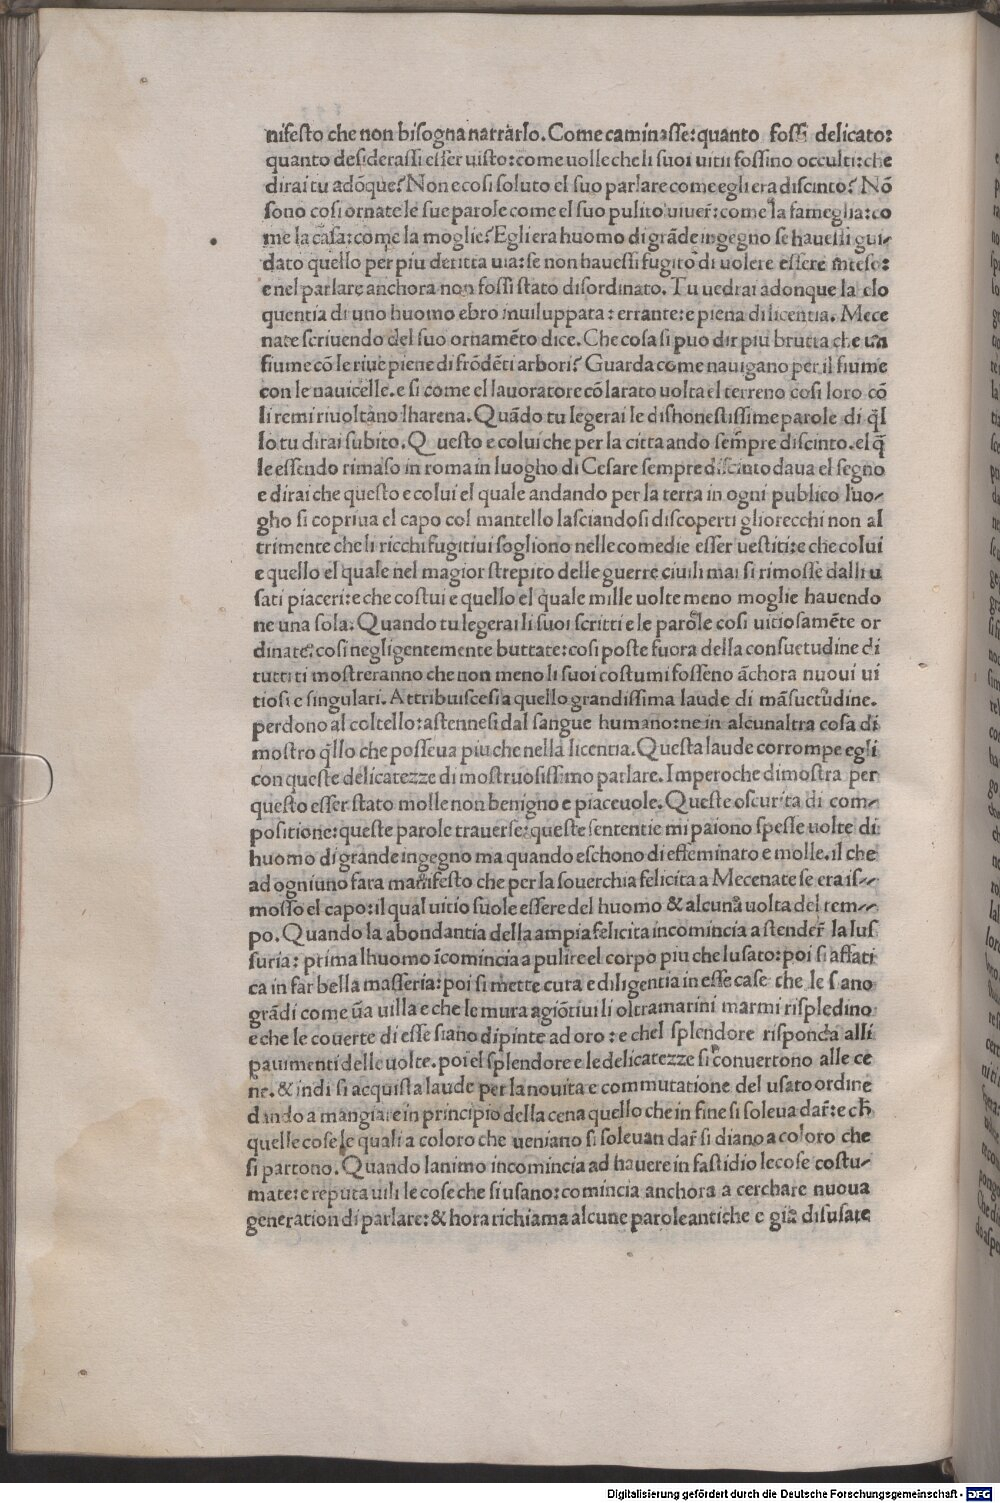 nifesto che non bisogna narrarlo. Come caminasse: quanto fossi delicato:
quanto desiderassi esser uisto: come uolle che li suoi uitii fossino occulti: che
dirai tu adōque? Non e cosi soluto el suo parlare come egli era discinto? Nō
sono cosi ornate le sue parole come el suo pulito uiuer̄: come la fameglia: co
me la casa: come la moglie? Egli era huomo di grāde ingegno se hauessi gui-
dato quello per piu deritta uia: se non hauessi fugito di uolere essere inteso:
e nel parlare anchora non fossi stato disordinato. Tu uedrai adonque la elo
quentia di uno huomo ebro inuiluppata: errante: e piena di licentia. Mece
nate scriuendo del suo ornamēto dice. Che cosa si puo dir piu brutta che un
fiume cō le riue piene di frōdēti arbori? Guarda come nauigano per il fiume
con le nauicelle. e si come el lauoratore cō larato uolta el terreno cosi loro cō
li remi riuoltano lharena. Quādo tu legerai le dishonestissime parole di q̄l
lo tu dirai subito. Questo e colui che per la citta ando sempre discinto. el q̄
le essendo rimaso in roma in luogho di Cesare sempre discinto daua el segno
e dirai che questo e colui el quale andando per la terra in ogni publico luo-
gho si copriua el capo col mantello lasciandosi discoperti gliorecchi non al
trimente che li ricchi fugitiui sogliono nelle comedie esser uestiti: e che colui
e quello el quale nel magior strepito delle guerre ciuili mai si rimosse dalli u
sati piaceri: e che costui e quello el quale mille uolte meno moglie hauendo
ne una sola. Quando tu legerai li suoi scritti e le parole cosi uitiosamēte or
dinate: cosi negligentemente buttate: cosi poste fuora della consuetudine di
tutti ti mostreranno che non meno li suoi costumi fosseno āchora nuoui ui
tiosi e singulari. Attribuiscesi a quello grandissima laude di māsuetudine.
perdono al coltello: astennesi dal sangue humano: ne in alcunaltra cosa di
mostro q̄llo che posseua piu che nella licentia. Questa laude corrompe egli
con queste delicatezze di mostruosissimo parlare. Imperoche dimostra per
questo esser stato molle non benigno e piaceuole. Queste oscurita di com-
positione: queste parole trauerse: queste sententie mi paiono spesse uolte di
huomo di grande ingegno ma quando eschono di effeminato e molle. il che
ad ogniuno fara manifesto che per la souerchia felicita a Mecenate se era is-
mosso el capo: il qual uitio suole essere del huomo & alcuna uolta del tem-
po. Quando la abondantia della ampia felicita incomincia a stender̄ la lus
suria: prima lhuomo īcomincia a pulire el corpo piu che lusato: poi si affati
ca in far bella masseria: poi si mette cura e diligentia in esse case che le siano
grādi come ūa uilla e che le mura agiōtiui li oltramarini marmi rispledino
e che le couerte di esse siano dipinte ad oro: e chel splendore risponda alli
pauimenti delle uolte. poi el splendore e le delicatezze si conuertono alle ce
ne. & indi si acquista laude per la nouita e commutatione del usato ordine
dando a mangiare in principio della cena quello che in fine si soleua dar̄: e ch̄
quelle cose le quali a coloro che ueniano si soleuan dar̄ si diano a coloro che
si partono. Quando lanimo incomincia ad hauere in fastidio le cose costu-
mate: e reputa uili le cose che si usano: comincia anchora a cerchare nuoua
generation di parlare: & hora richiama alcune parole antiche e gia disusate
Digitalisierung gefördert durch die Deutsche Forschungsgemeinschaft - DFG